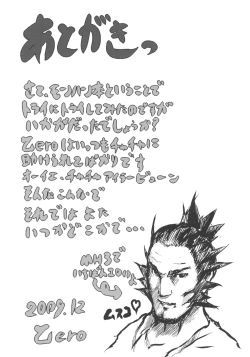 あとがきっ
さて、モンハン本ということで
トライにトライしてみたのですが
いかがだったでしょうか?
Zeroはいつもチャチャに
助けられてばかりです
オーイエ、チャチャ アイラービューン
そんなこんなで
それでは また
いつかどこかで・・・
MH3で
いちばんエロい
ムスコ♡
2009.12
Zero